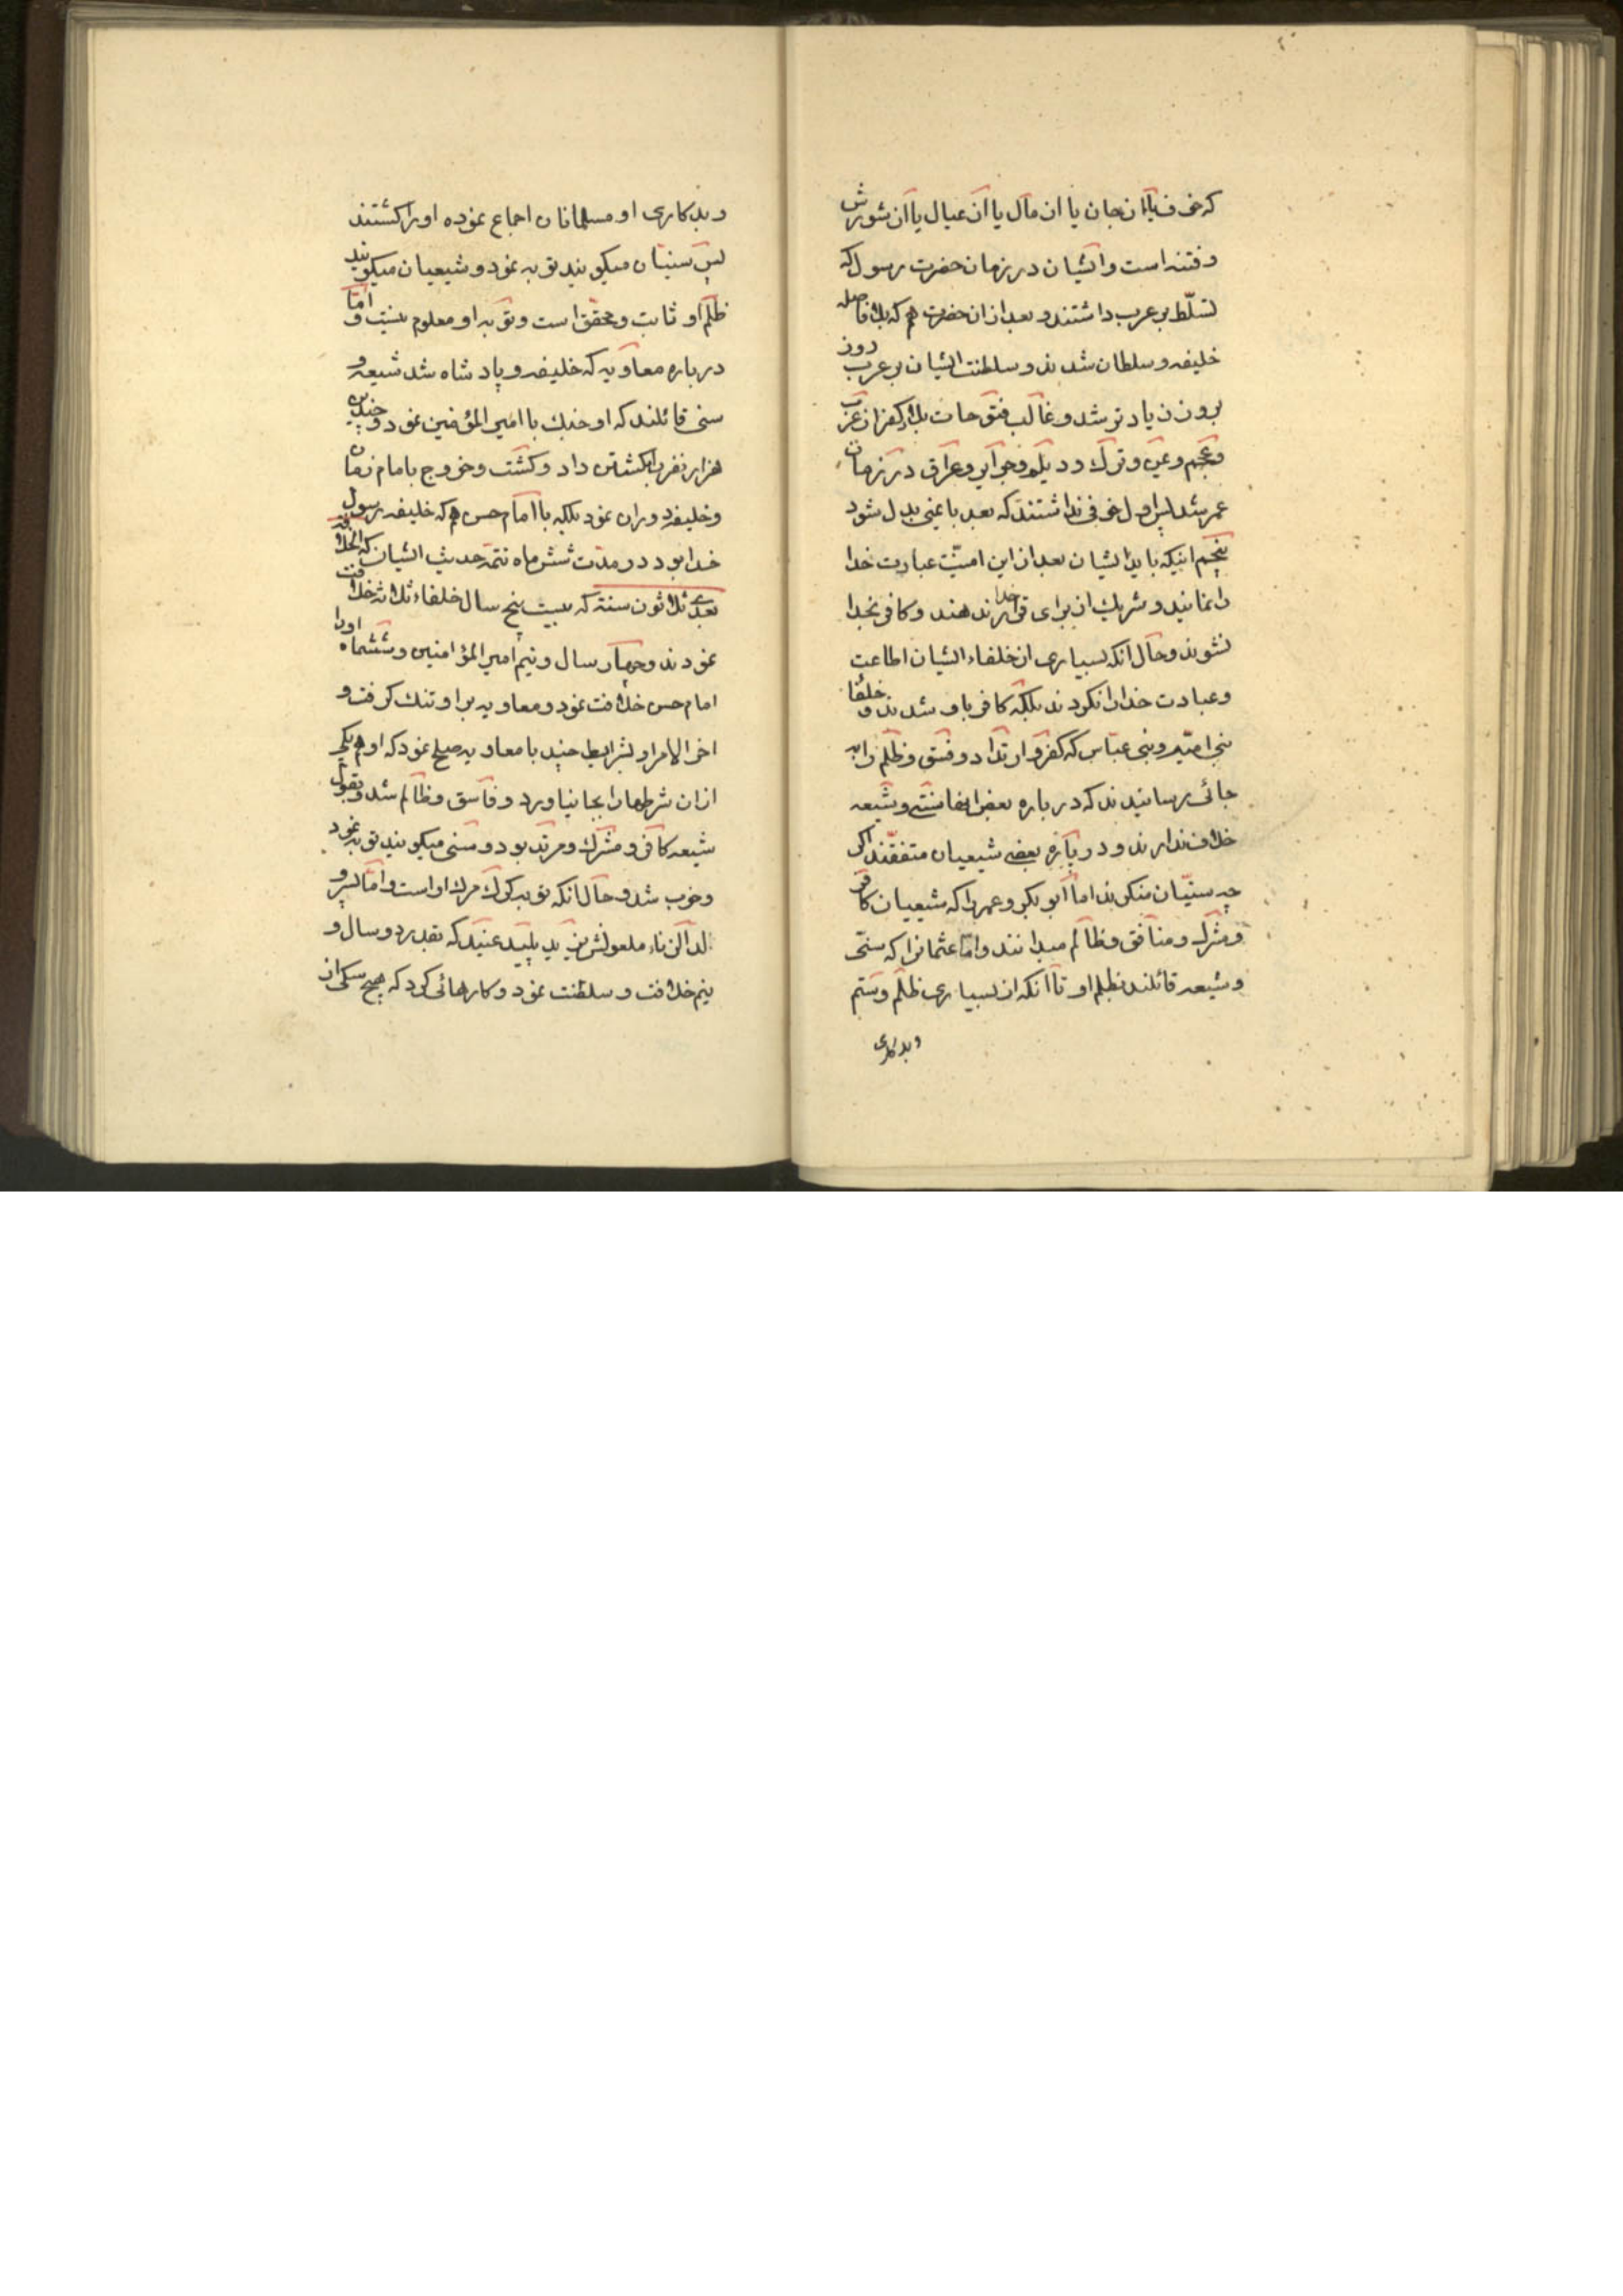 که خوف یا از جان یا از مال یا از عیال یا از شورش
و فتنه است و ایشان در زمان حضرت رسول که
تسلّط بر عرب داشتند و بعد از ان حضرت هم که بلا فاصله
خلیفه و سلطان شدند و سلطنت ایشان بر عرب روز
بروز زیادتر شد و غالب فتوحات بلاد کفر از عرب
و عجم و و ترک و دیلم و و عراق در زمان
عمر شد پس اول خوفی نداشتند که بعد بامنی بدل شود
پنجم اینکه باید ایشان بعد از این امنیّت عبادت خدا
را نمایند و شریک از برای خدا قرار ندهند و کافر بخدا
نشوند و حال آنکه بسیاری از خلفاء ایشان اطاعت
و عبادت خدا را نکردند بلکه کافر باو شدند و خلفا
بنی امیّه و بنی عبّاس که کفر و ارتداد و فسق و ظلم را به
جائی رسانیدند که در باره بعض انها سنّی و شیعه
خلاف ندارند و در باره بعضی شیعیان متفقند اگر
چه سنیّان منکرند اما ابو بکر و عمر را که شیعیان کافر
و مشرک و منافق و ظالم میدانند و امّا عثمانرا که سنّی
و شیعه قائلند بظلم او تا آنکه از بسیاری ظلم و ستم
و بد کاری
و بد کاری او مسلمانان اجماع نموده او را کشتند
پس سنیّان میکویند توبه نمود و شیعیان میکویند
ظلم او ثابت و محقق است و توبه او معلوم نیست و امّا
در باره معاویه که خلیفه و پادشاه شد شیعه و
سنی قائلند که او جنک با امیر المؤمنین نمود و چندین
هزار نفر بکشتن داد و کشت و خروج بامام زمان
و خلیفه دوران نمود بلکه با امام حسن هم که خلیفه رسول
خدا بود در مدّت شش ماه تتمه حدیث ایشان که الخلافة
بعدی ثلاثون سنة که بیست پنج سال خلفاء ثلاثه خلافت
نمودند و چهار سال و نیم امیر المؤمنین و ششماه او را
امام حسن خلافت نمود و معاویه بر او تنک کرفت و
اخر الامر او بشرایط چند با معاویه صلح نمود که او هم یکی
از ان شرطها را بجا نیاورد و فاسق و ظالم شد و بقول
شیعه کافر و مشرک و مرتد بود و سنی میکویند توبه نمود
و خوب شد و حال انکه توبه کرک مرک او است و امّا پسر و
لد الزناء ملعونش یزید پلید عنید که بقدر دو سال و
نیم خلافت و سلطنت نمود و کارهائی کرد که هیچ سکی از